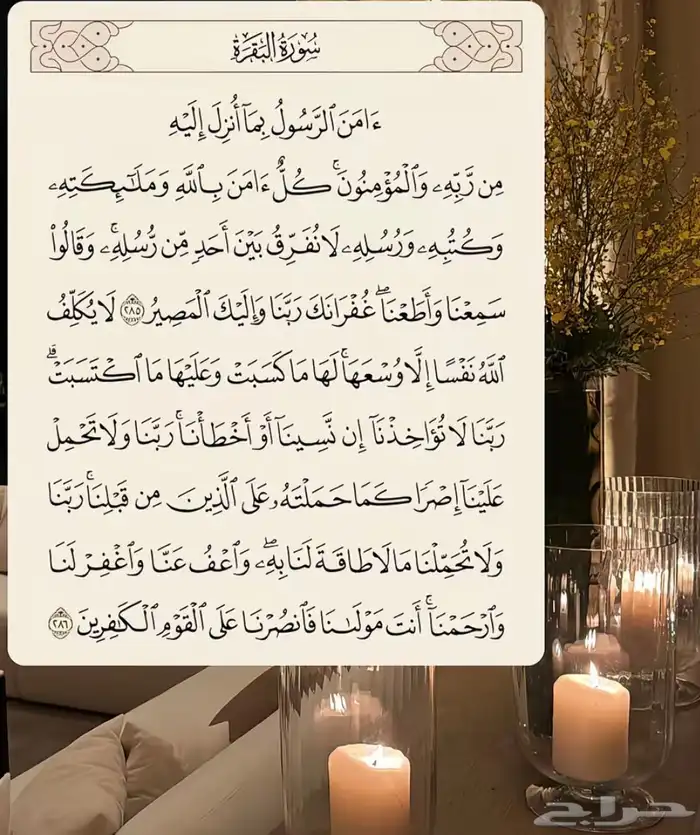 سُورَةُ البَقَرَةِ
ءَامَنَ ٱلرَّسُولُ بِمَآ أُنزِلَ إِلَيْهِ
مِن رَّبِّهِۦ وَٱلْمُؤْمِنُونَ ۚ كُلٌّ ءَامَنَ بِٱللَّهِ وَمَلَـٰٓئِكَتِهِۦ
وَكُتُبِهِۦ وَرُسُلِهِۦ لَا نُفَرِّقُ بَيْنَ أَحَدٍ مِّن رُّسُلِهِۦ ۚ وَقَالُوا۟
سَمِعْنَا وَأَطَعْنَا ۖ غُفْرَانَكَ رَبَّنَا وَإِلَيْكَ ٱلْمَصِيرُ ۝٢٨٥ لَا يُكَلِّفُ
ٱللَّهُ نَفْسًا إِلَّا وُسْعَهَا ۚ لَهَا مَا كَسَبَتْ وَعَلَيْهَا مَا ٱكْتَسَبَتْ ۗ
رَبَّنَا لَا تُؤَاخِذْنَآ إِن نَّسِينَآ أَوْ أَخْطَأْنَا ۚ رَبَّنَا وَلَا تَحْمِلْ
عَلَيْنَآ إِصْرًا كَمَا حَمَلْتَهُۥ عَلَى ٱلَّذِينَ مِن قَبْلِنَا ۚ رَبَّنَا
وَلَا تُحَمِّلْنَا مَا لَا طَاقَةَ لَنَا بِهِۦ ۖ وَٱعْفُ عَنَّا وَٱغْفِرْ لَنَا
وَٱرْحَمْنَآ ۚ أَنتَ مَوْلَىٰنَا فَٱنصُرْنَا عَلَى ٱلْقَوْمِ ٱلْكَـٰفِرِينَ ۝٢٨٦
حراج